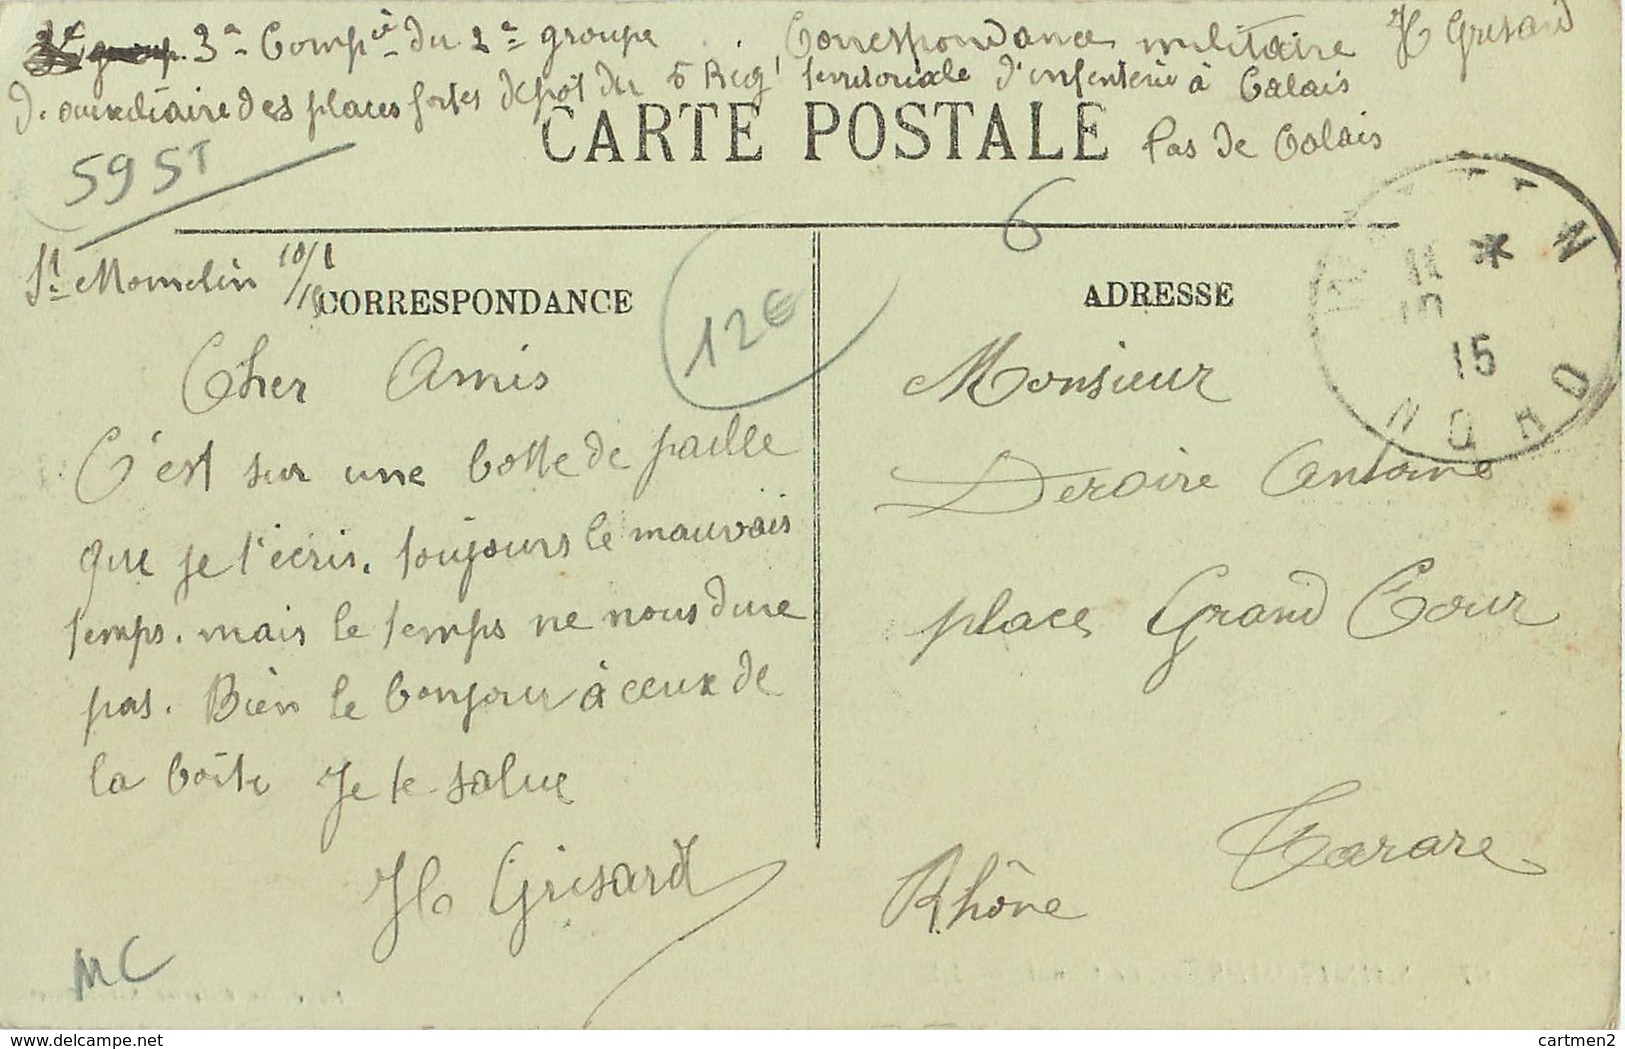 3e Compie du 2e groupe Correspondance militaire H Grisard
D. auxediaire des places fortes depot du 5 Reg t territoriale d'infenterie à Calais
CARTE POSTALE Pas de Calais
59 5T
6
St Momelin 10/1/15
CORRESPONDANCE
12€
Cher Amis
C'est sur une botte de paille
que je t'écris. toujours le mauvais
temps. mais le temps ne nous dure
pas. Bien le bonjour à ceux de
la boite Je te salue
H Grisard
MC
ADRESSE
11 *
15
NORD
Monsieur
Deroire Antoine
place Grand Cour
Tarare
Rhône
www.delcampe.net
cartmen2